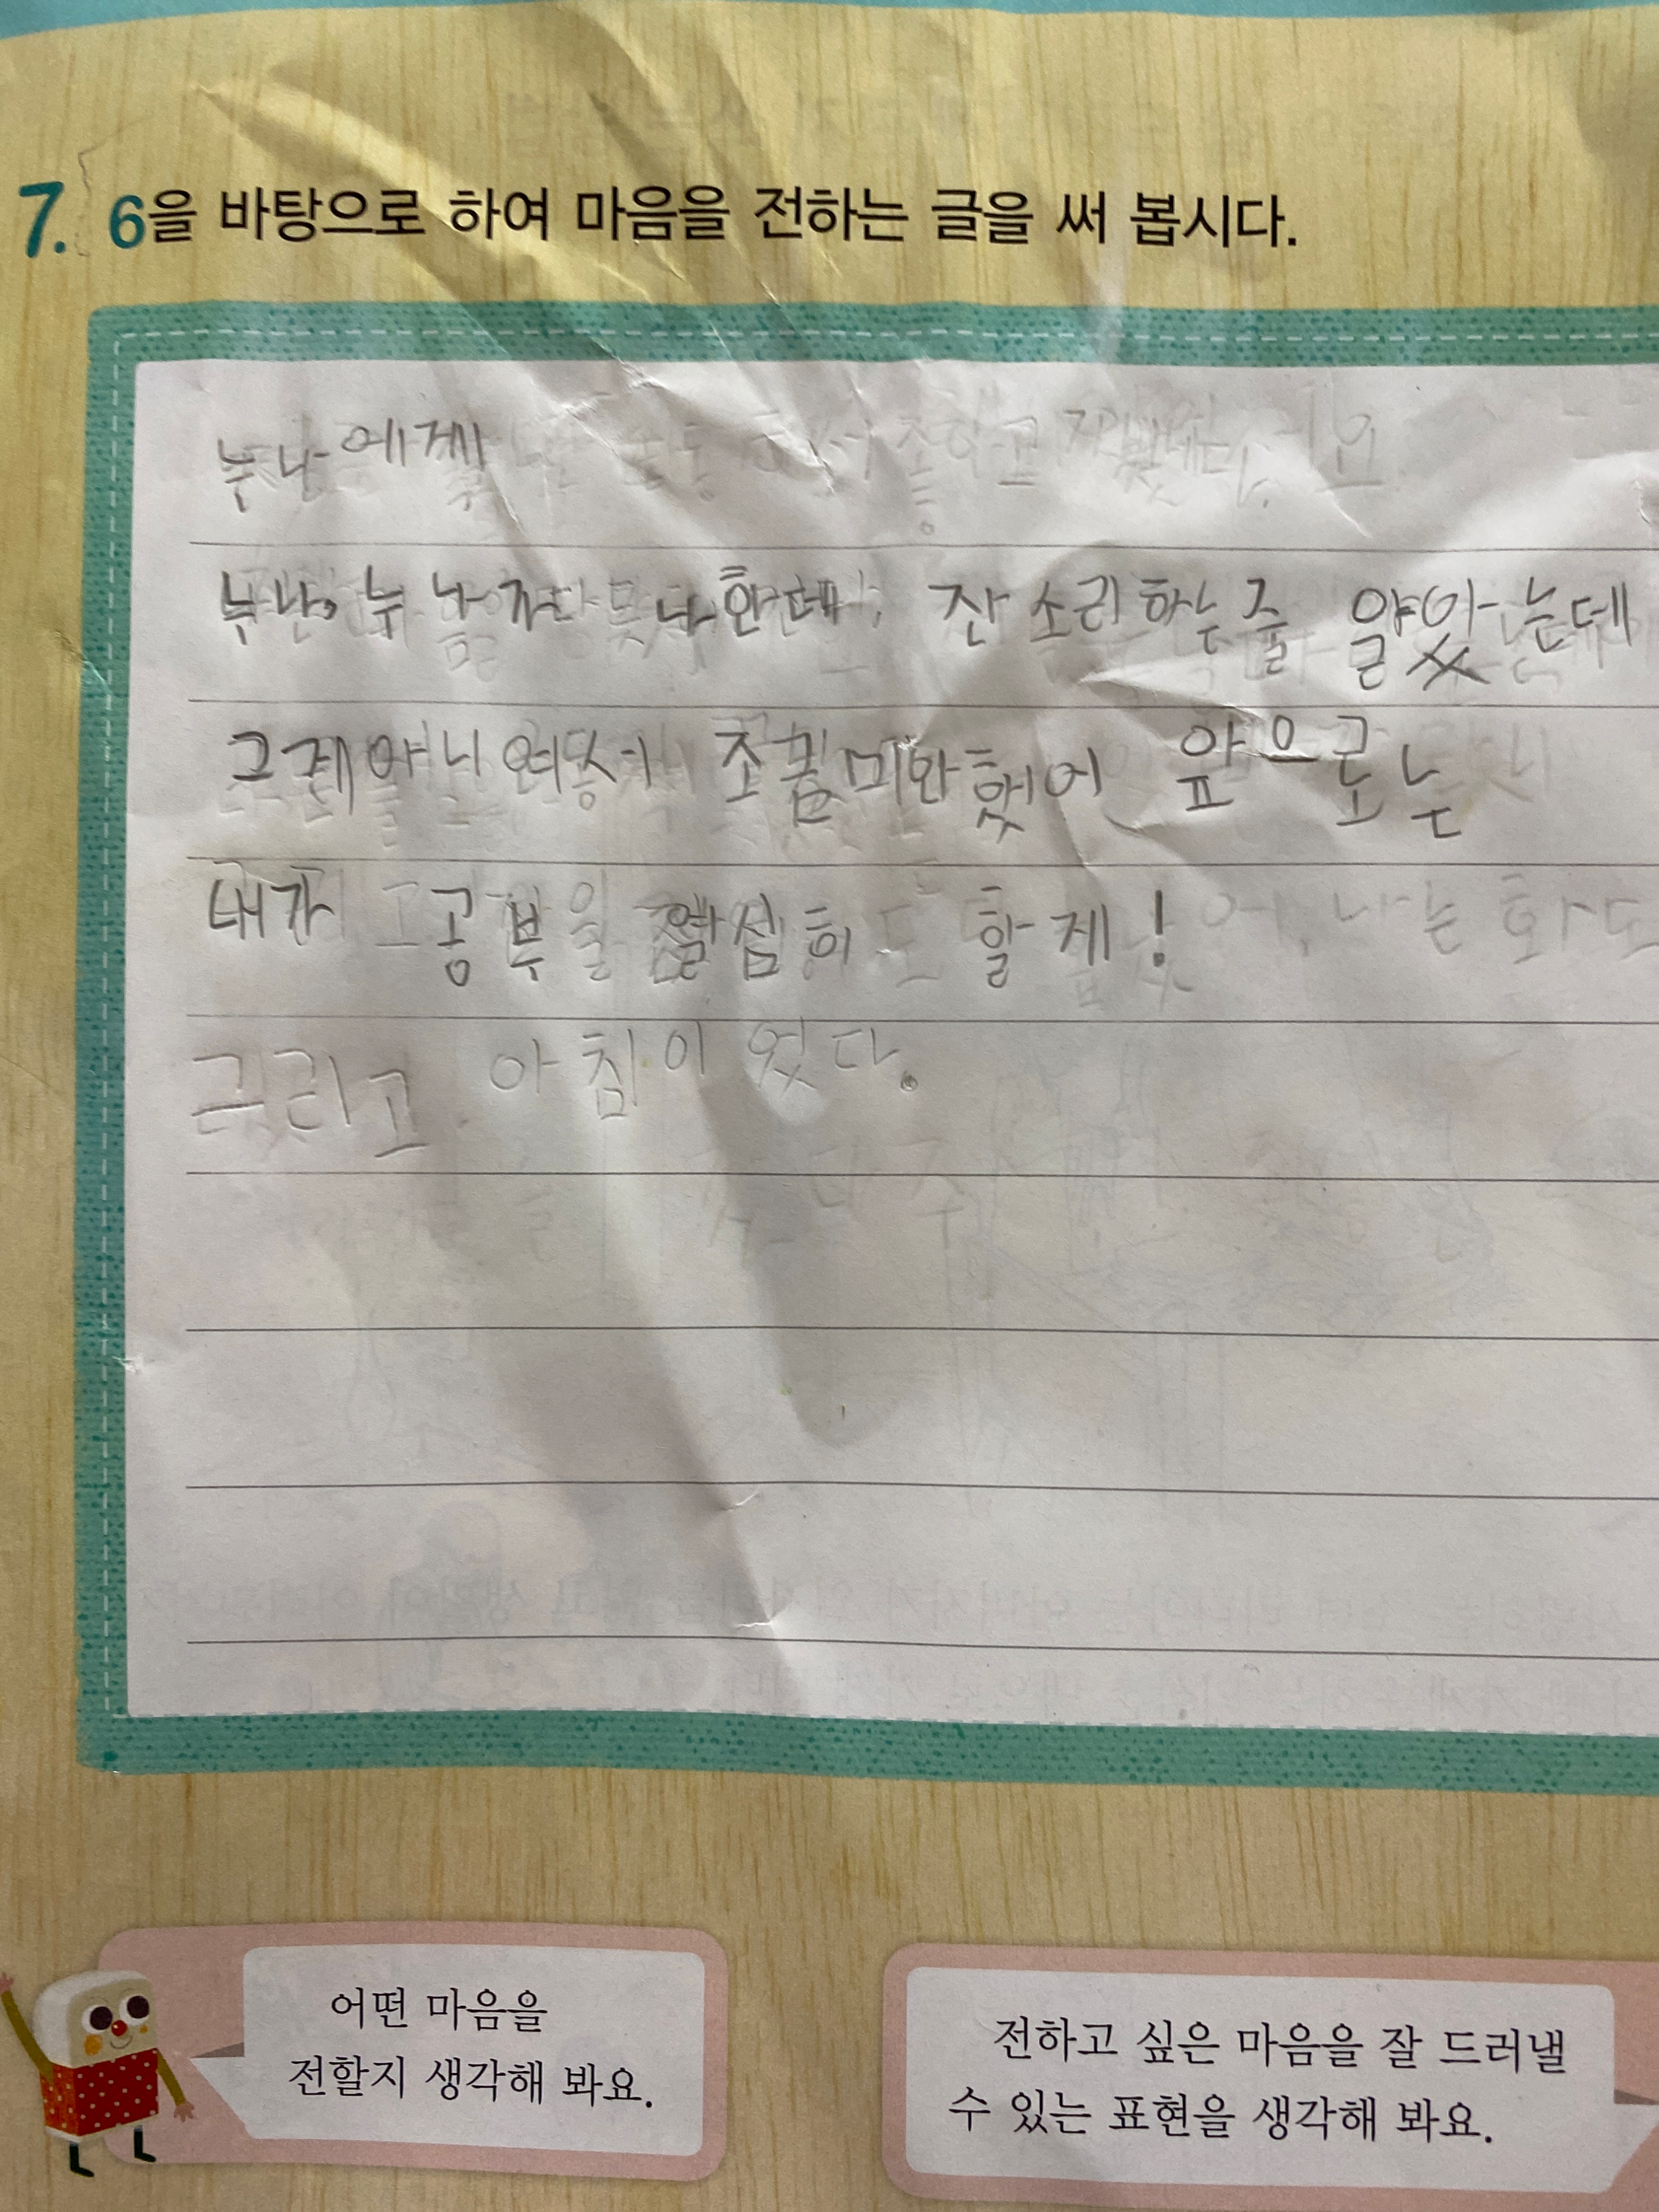 7. 6을 바탕으로 하여 마음을 전하는 글을 써 봅시다.
누나에게
누나, 누나가 나한테 잔소리하는줄 앑았는데
그게아니여서 조금미안했어 앞으로는
내가 공부을 열심히 할게!
그리고 아침이 었다.
어떤 마음을
전할지 생각해 봐요.
전하고 싶은 마음을 잘 드러낼
수 있는 표현을 생각해 봐요.